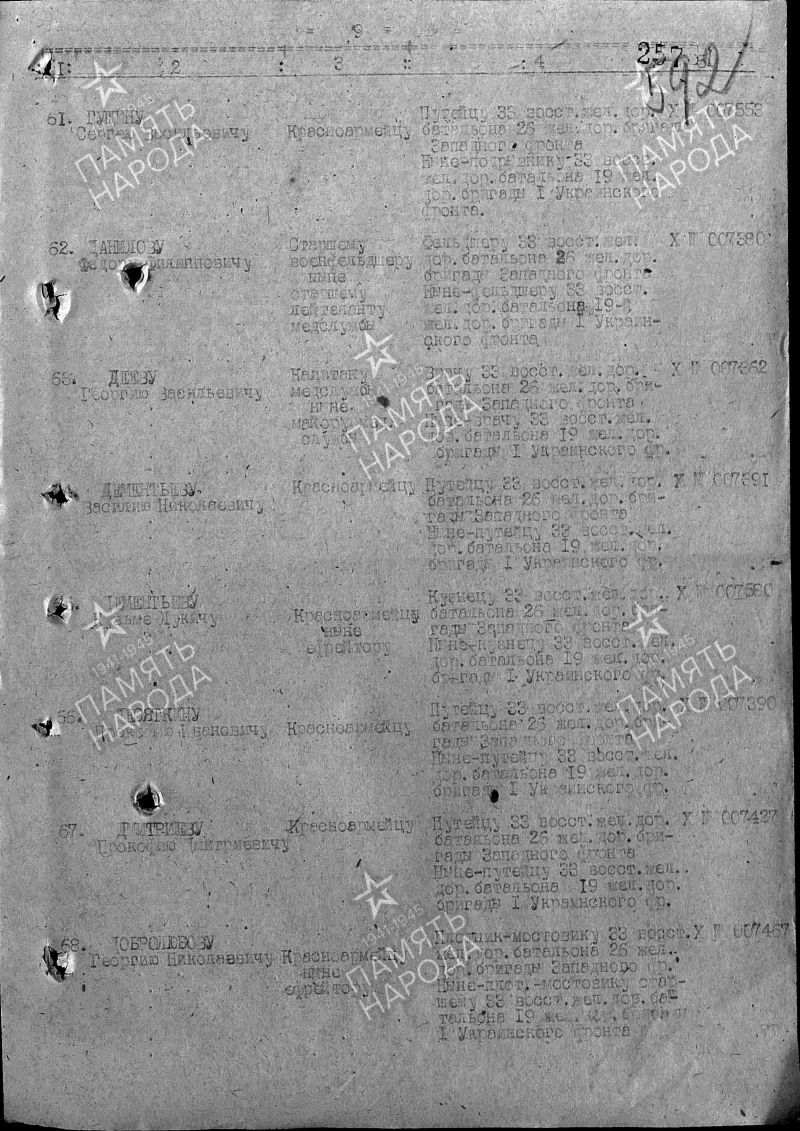 - 9 -
257
592
1: 2 : 3 : 4
61. ГУКИНУ
Сергею Васильевичу
Красноармейцу
Путейцу 33 восст.жел.дор.
батальона 26 жел.дор.бригады
Западного фронта
Ныне-подрывнику 33 восст.
жел.дор.батальона 19 жел.
дор.бригады I Украинского
фронта.
Х № 007553
62. ДАНИЛОВУ
Федору Филипповичу
Старшему
военфельдшеру
ныне
старшему
лейтенанту
медслужбы
Фельдшеру 33 восст.жел.
дор.батальона 26 жел.дор.
бригады Западного фронта
Ныне-фельдшеру 33 восст.
жел.дор.батальона 19-й
жел.дор.бригады I Украин-
ского фронта
Х № 007380
63. ДЕЕВУ
Георгию Васильевичу
Капитану
медслужбы
ныне
майору мед.
службы
Врачу 33 восст.жел.дор.
батальона 26 жел.дор.бри-
гады Западного фронта
Ныне-врачу 33 восст.жел.
дор.батальона 19 жел.дор.
бригады I Украинского фр.
Х № 007362
ДЕМЕНТЬЕВУ
Василию Николаевичу
Красноармейцу
Путейцу 33 восст.жел.дор.
батальона 26 жел.дор.бри-
гады Западного фронта
Ныне-путейцу 33 восст.жел.
дор.батальона 19 жел.дор.
бригады I Украинского фр.
Х № 007391
ДЕМЕНТЬЕВУ
Кузьме Лукичу
Красноармейцу
ныне
ефрейтору
Кузнецу 33 восст.жел.дор.
батальона 26 жел.дор.бри-
гады Западного фронта
Ныне-кузнецу 33 восст.жел.
дор.батальона 19 жел.дор.
бригады I Украинского фр.
Х № 007580
66.
Ивановичу
Красноармейцу
Путейцу 33 восст.жел.дор.
батальона 26 жел.дор.бри-
гады Западного фронта
Ныне-путейцу 33 восст.жел.
дор.батальона 19 жел.дор.
бригады I Украинского фр.
Х № 007390
67. ДМИТРИЕВУ
Прокофию Дмитриевичу
Красноармейцу
Путейцу 33 восст.жел.дор.
батальона 26 жел.дор.бри-
гады Западного фронта
Ныне-путейцу 33 восст.жел.
дор.батальона 19 жел.дор.
бригады I Украинского фр.
Х № 007427
68. ДОБРОЛЮБОВУ
Георгию Николаевичу
Красноармейцу
ныне
ефрейтору
Плотник-мостовику 33 восст.
жел.дор.батальона 26 жел.
дор.бригады Западного фр.
Ныне-плот.-мостовику стар-
шему 33 восст.жел.дор.ба-
тальона 19 жел.дор.бригады
I Украинского фронта
Х № 007467
1941-1945
ПАМЯТЬ
НАРОДА
ПАМЯТЬ
НАРОДА
1941-1945
ПАМЯТЬ
НАРОДА
1941-1945
ПАМЯТЬ
НАРОДА
1941-1945
ПАМЯТЬ
НАРОДА
1941-1945
ПАМЯТЬ
НАРОДА